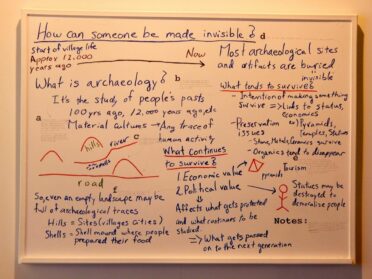 How can someone be made invisible?
d
Start of village life
Approx 12.000
years ago
Now
Most archaeological sites
and artifacts are buried
invisible
What is archaeology?
b
It's the study of people's pasts
100 yrs ago, 12.000 years ago, etc
a
Material Cultures → Any trace of
human activity
c
hills
river
road
f
So, even an empty landscape may be
full of archaeological traces
Hills = Sites (villages cities)
Shells = Shell mound where people
prepared their food
What continues
to survive?
1. Economic value
2. Political value
Affects what gets protected
and what continues to be
studied
⇒ What gets passed
on to the next generation
What tends to survive?
- Intention of making something
survive ⇒ Links to status,
economies
- Preservation issues
⇒ Pyramids,
Temples, Status
- Stone, Metals, Ceramics survive
- Organics tend to disappear
e
Tourism
Pyramids
Statues may be
destroyed to
demoralise people
Notes: